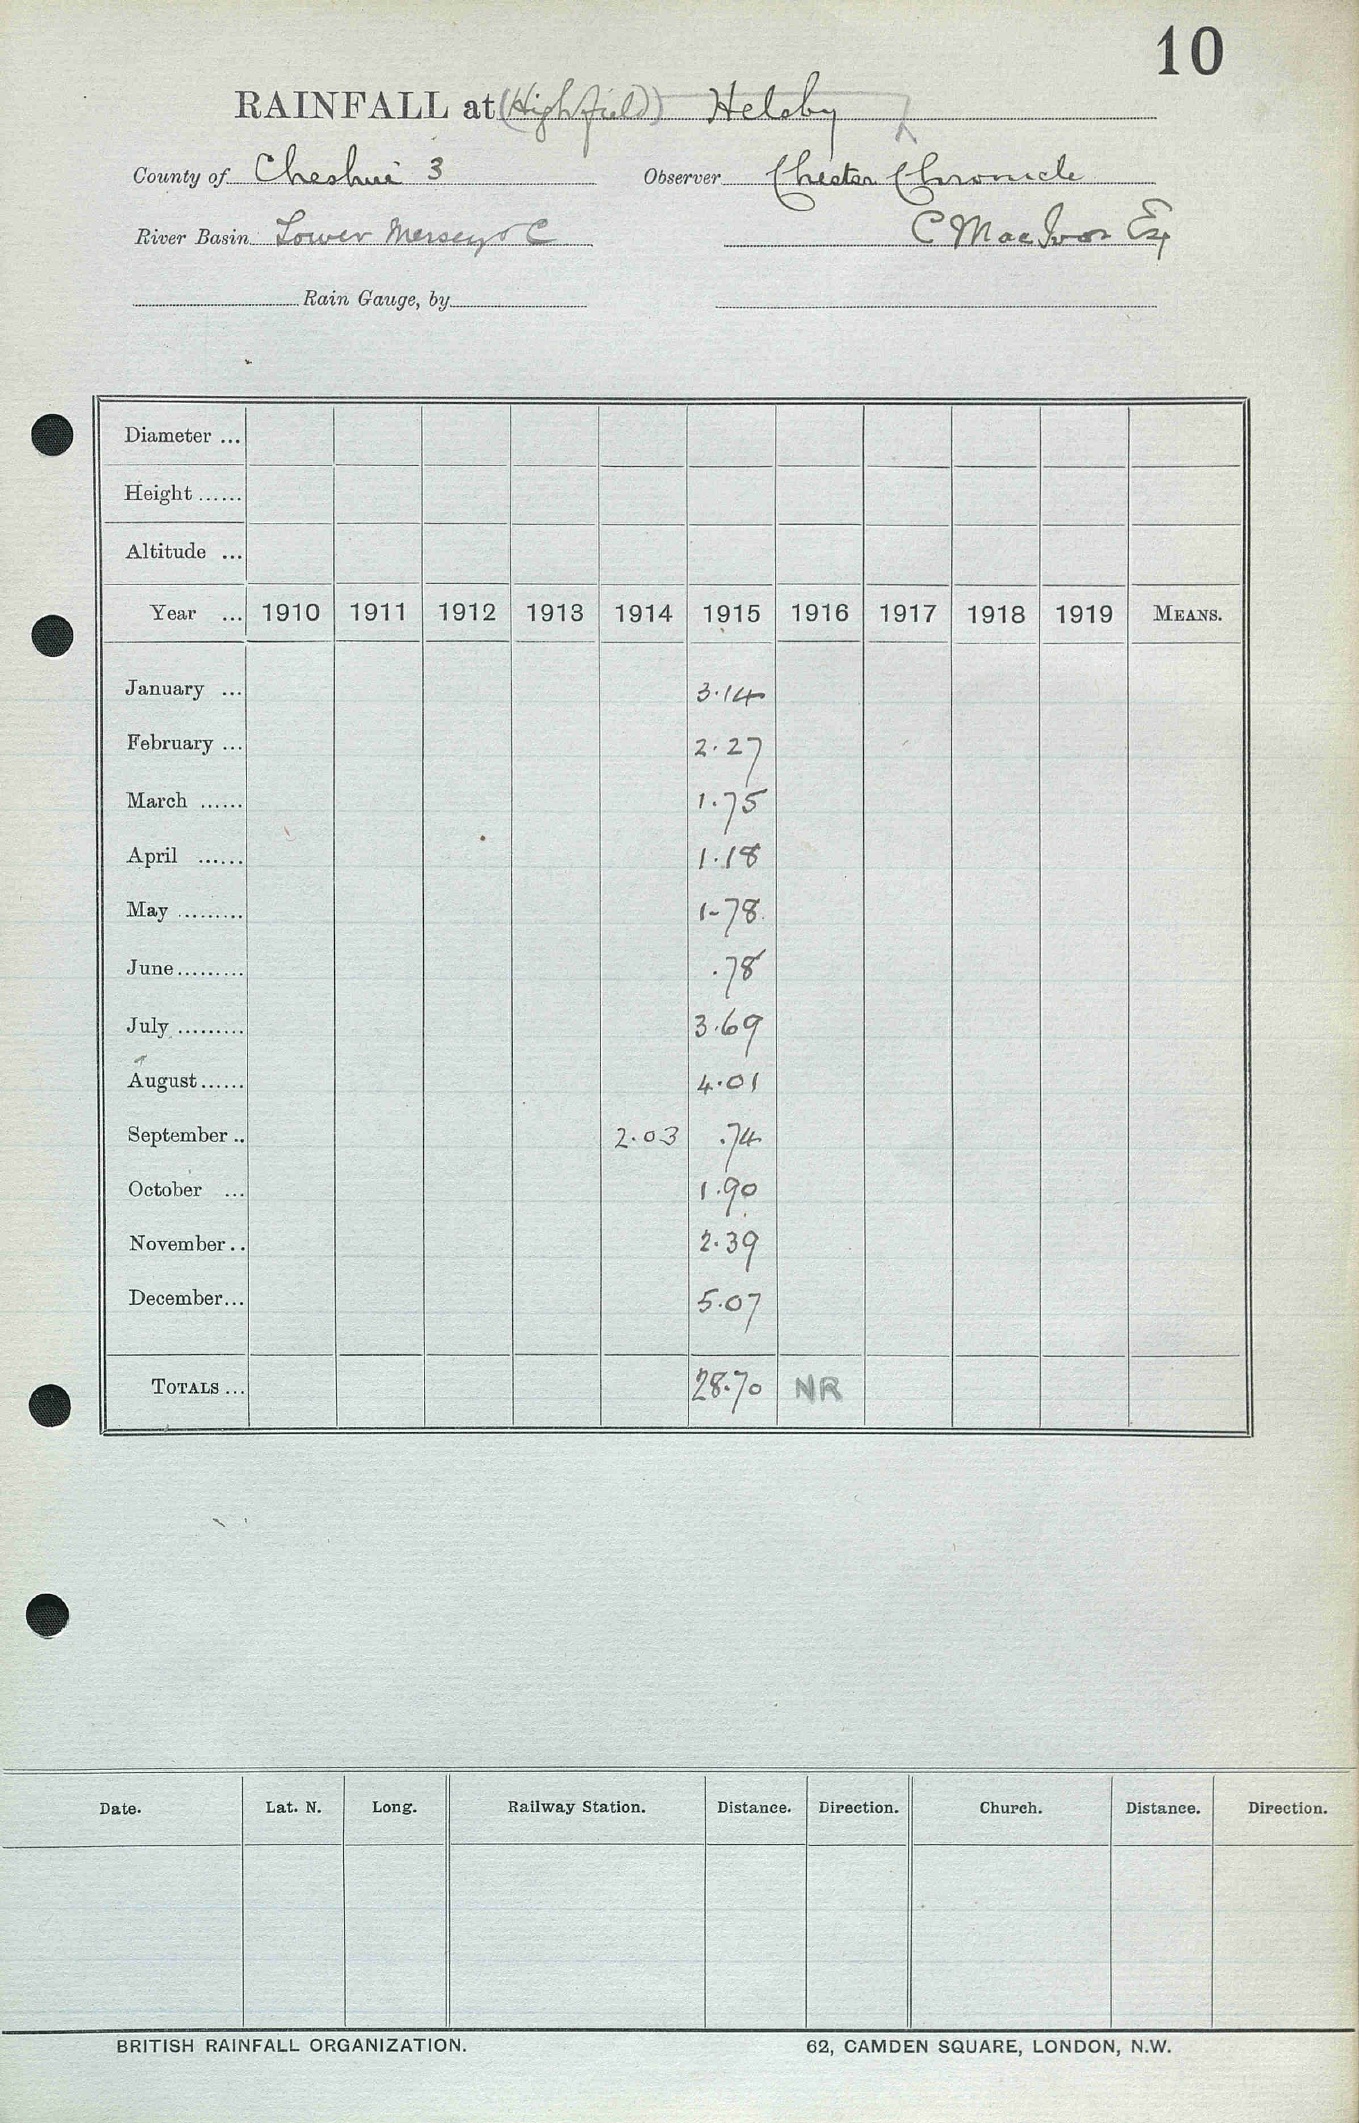 10
RAINFALL at (Highfield) Helsby
County of Cheshire 3 Observer Chester Chronicle
River Basin Lower Mersey & C C Mac Ivor Esq
Rain Gauge, by
Diameter ...
Height ......
Altitude ...
Year ... 1910 1911 1912 1913 1914 1915 1916 1917 1918 1919 MEANS.
January ... 3.14
February ... 2.27
March ...... 1.75
April ...... 1.18
May ......... 1-78
June ......... .78
July ......... 3.69
August ...... 4.01
September .. 2.03 .74
October ... 1.90
November .. 2.39
December ... 5.07
TOTALS ... 28.70 NR
Date. Lat. N. Long. Railway Station. Distance. Direction. Church. Distance. Direction.
BRITISH RAINFALL ORGANIZATION. 62, CAMDEN SQUARE, LONDON, N.W.